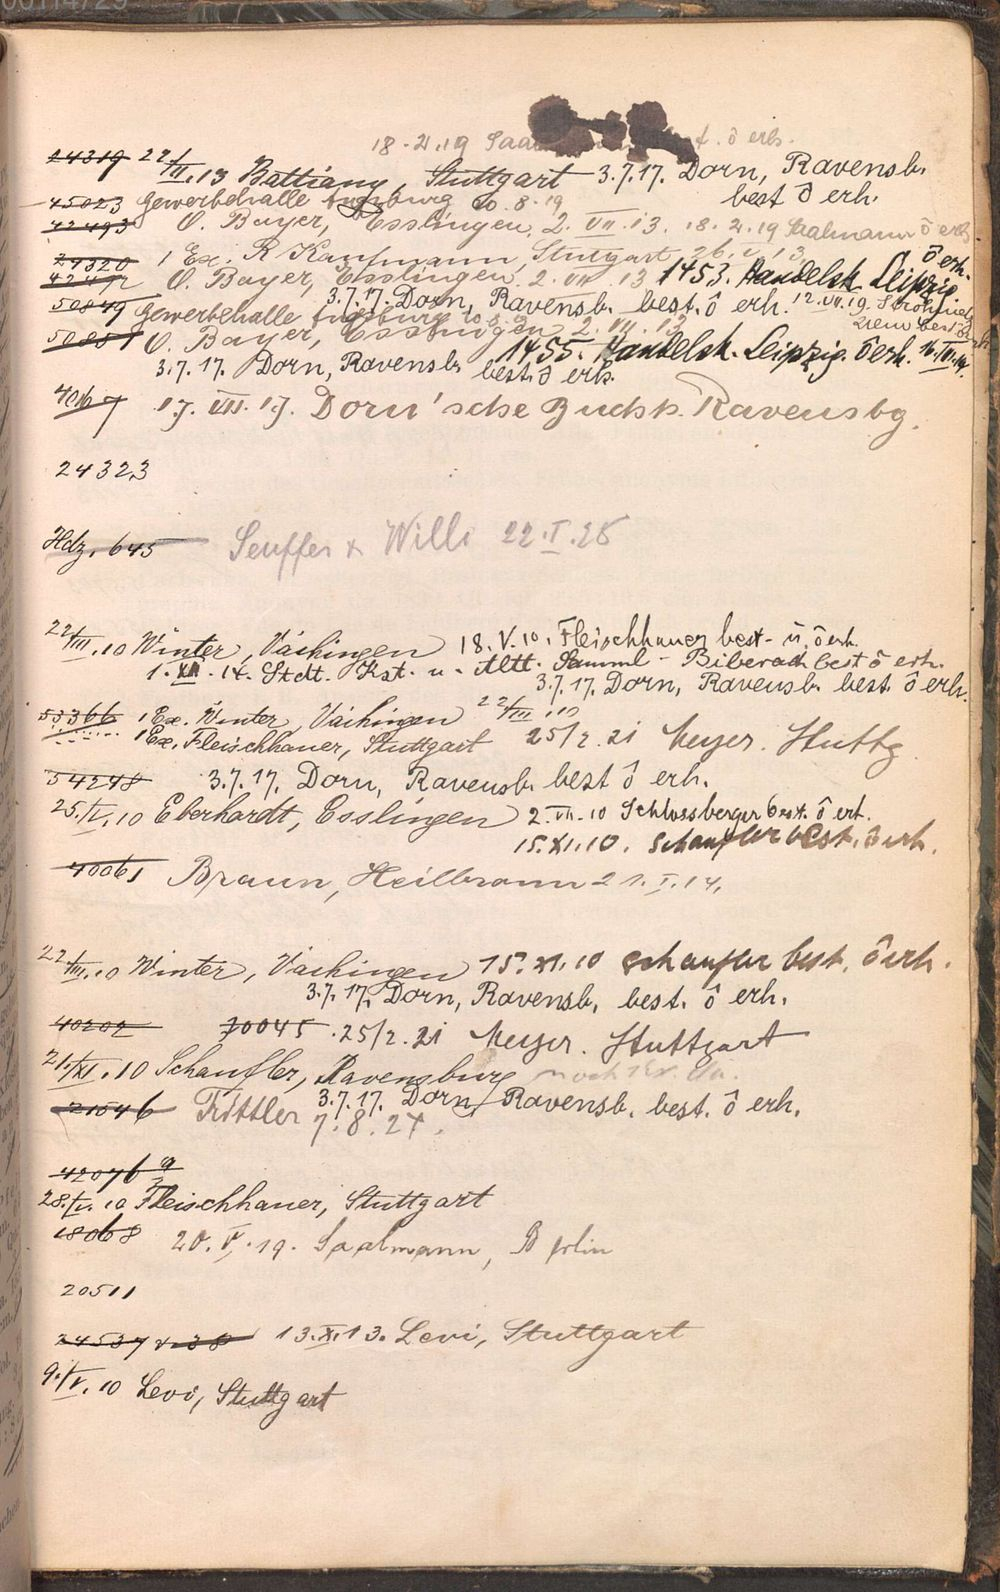 00114729
18.2.19 Saal t. ô erh.
24319 22/III.13 Battiany, Stuttgart 3.7.17. Dorn, Ravensb.
best ô erh.
45023 Gewerbehalle Augsburg 20.8.19
42493 O. Bayer, Esslingen, 2.VII.13. 18.2.19 Saalmann ô erh.
24320 1 Ex. R Kaufmann, Stuttgart 26.V.13, ô erh.
42492 O. Bayer, Esslingen 2.VII 13 1453. Handelsh. Leipzig
3.7.17. Dorn, Ravensb. best. ô erh. 12.VII.19.
50849 Gewerbehalle Augsburg
50851 O. Bayer, Esslingen 2.VII.13
1455. Handelsh. Leipzig. ô erh. 16.III.14.
3.7.17. Dorn, Ravensb. best. ô erh.
17.VII.17. Dorn'sche Buchh. Ravensbg.
24323
Hdz. 645 Seuffer & Willi 22.I.28
22/III.10 Winter, Vaihingen 18.V.10. Fleischhauer best- u. ô erh.
1.XII.14. Stdt. Kst. u. Altt. Samml- Biberach best ô erh.
3.7.17. Dorn, Ravensb. best. ô erh.
53366 1 Ex. Winter, Vaihingen 22/III.10
1 Ex. Fleischhauer, Stuttgart 25/2.21 Meyer. Stuttg.
54248 3.7.17. Dorn, Ravensb. best ô erh.
25./V.10 Eberhardt, Esslingen 2.VII.10 Schlossberger best. ô erh.
15.XI.10. Schaufler best. ô erh.
40061 Braun, Heilbronn 21.I.14.
22/III.10 Winter, Vaihingen 15.XI.10 Schaufler best. ô erh.
3.7.17. Dorn, Ravensb. best. ô erh.
40202 70045 25/2.21 Meyer. Stuttgart
21./XI.10 Schaufler, Ravensburg noch
3.7.17. Dorn, Ravensb. best. ô erh.
21546 Trittler 7.8.27.
42076
28./V.10 Fleischhauer, Stuttgart
18068 20.V.19. Saalmann, Berlin
20511
24537 & 38 13.X.13. Levi, Stuttgart
9./V.10 Levi, Stuttgart